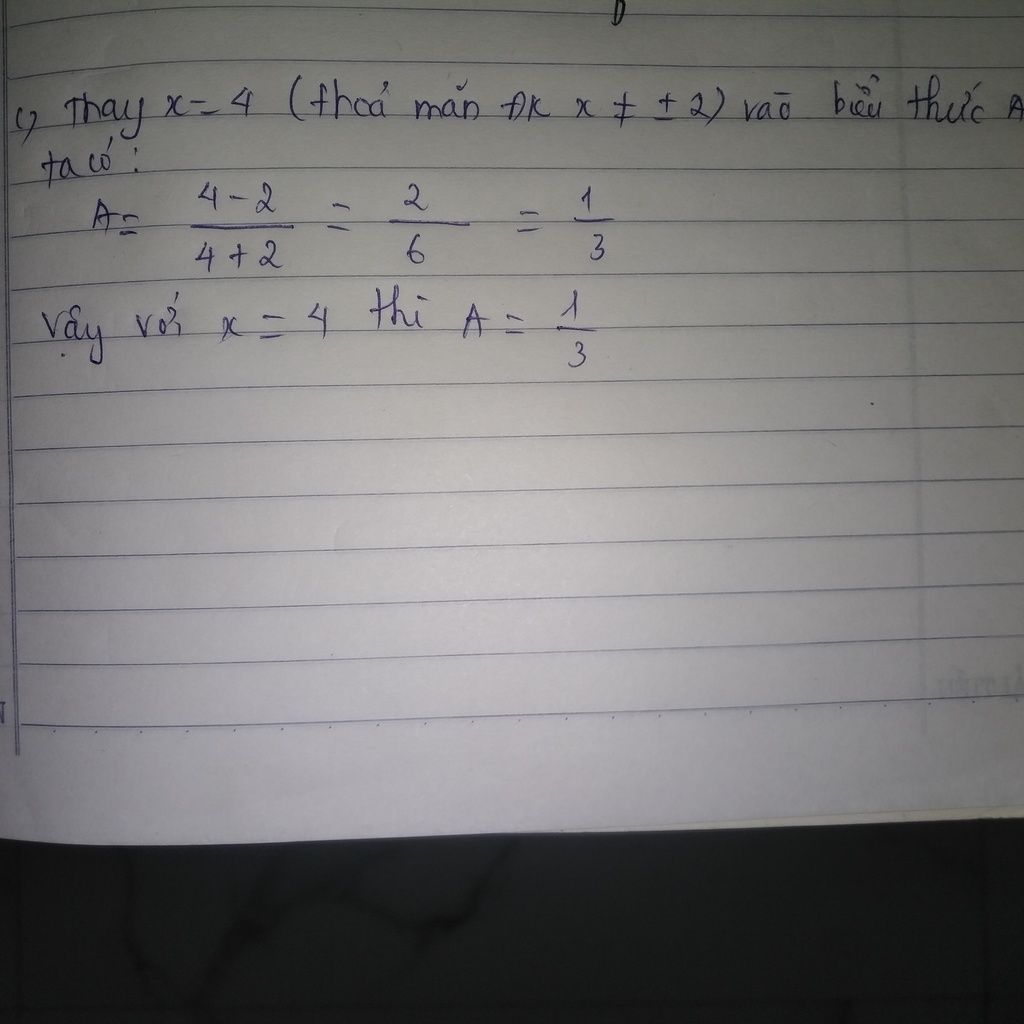 c, Thay x = 4 (thoả mãn ĐK x ≠ ± 2) vào biểu thức A
ta có:
A = (4 - 2)/(4 + 2) = 2/6 = 1/3
Vậy với x = 4 thì A = 1/3